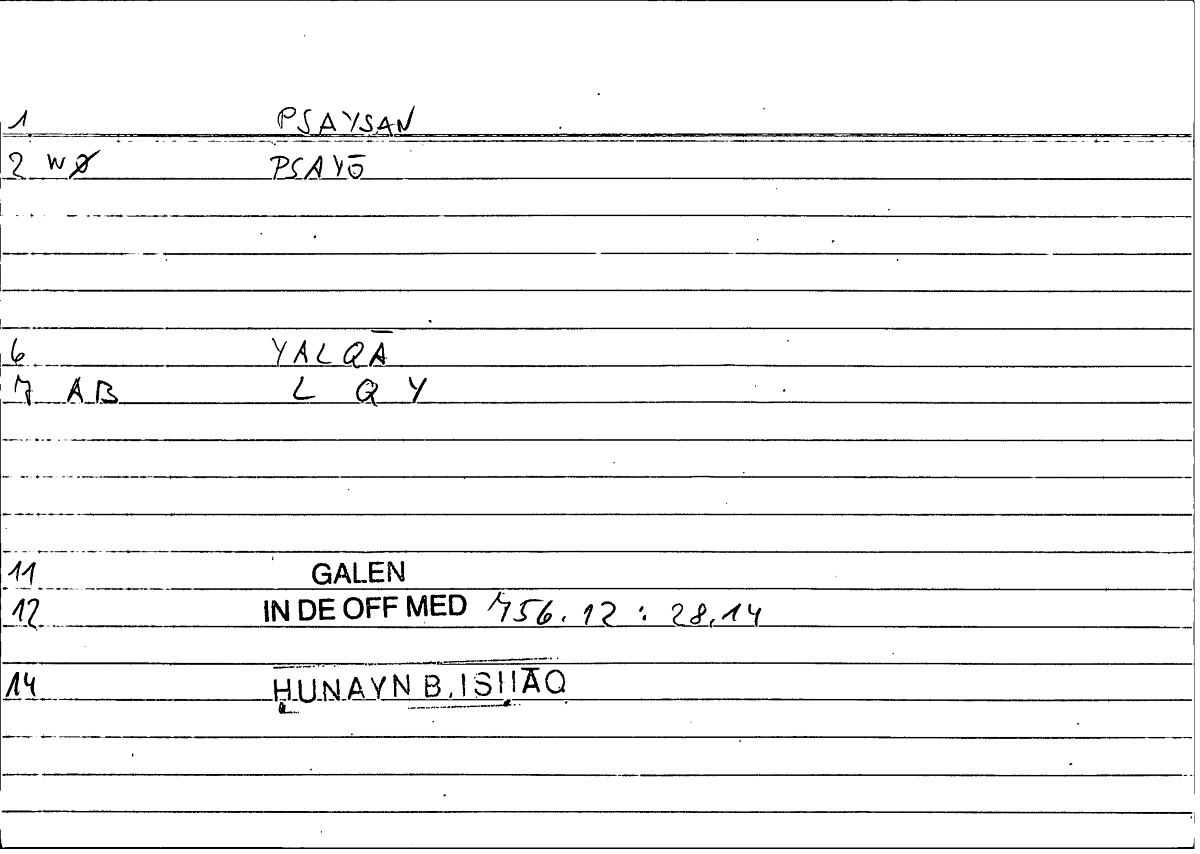 1 PSAYSAN
2 WØ PSAYŌ
6 YALQĀ
7 AB L Q Y
11 GALEN
12 IN DE OFF MED 756.12 : 28,14
14 ḤUNAYN B. ISḤĀQ